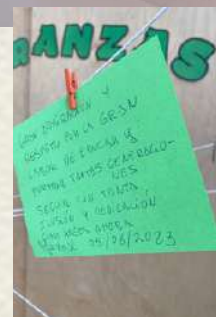 RANZAS
GRAN ADMIRACIÓN Y
RESPETO POR LA GRAN
LABOR DE EDUCAR Y
FORMAR TANTAS GENERACIO-
NES
SEGUIR CON TANTA
ILUSIÓN Y DEDICACIÓN
COMO HASTA AHORA
05/06/2023